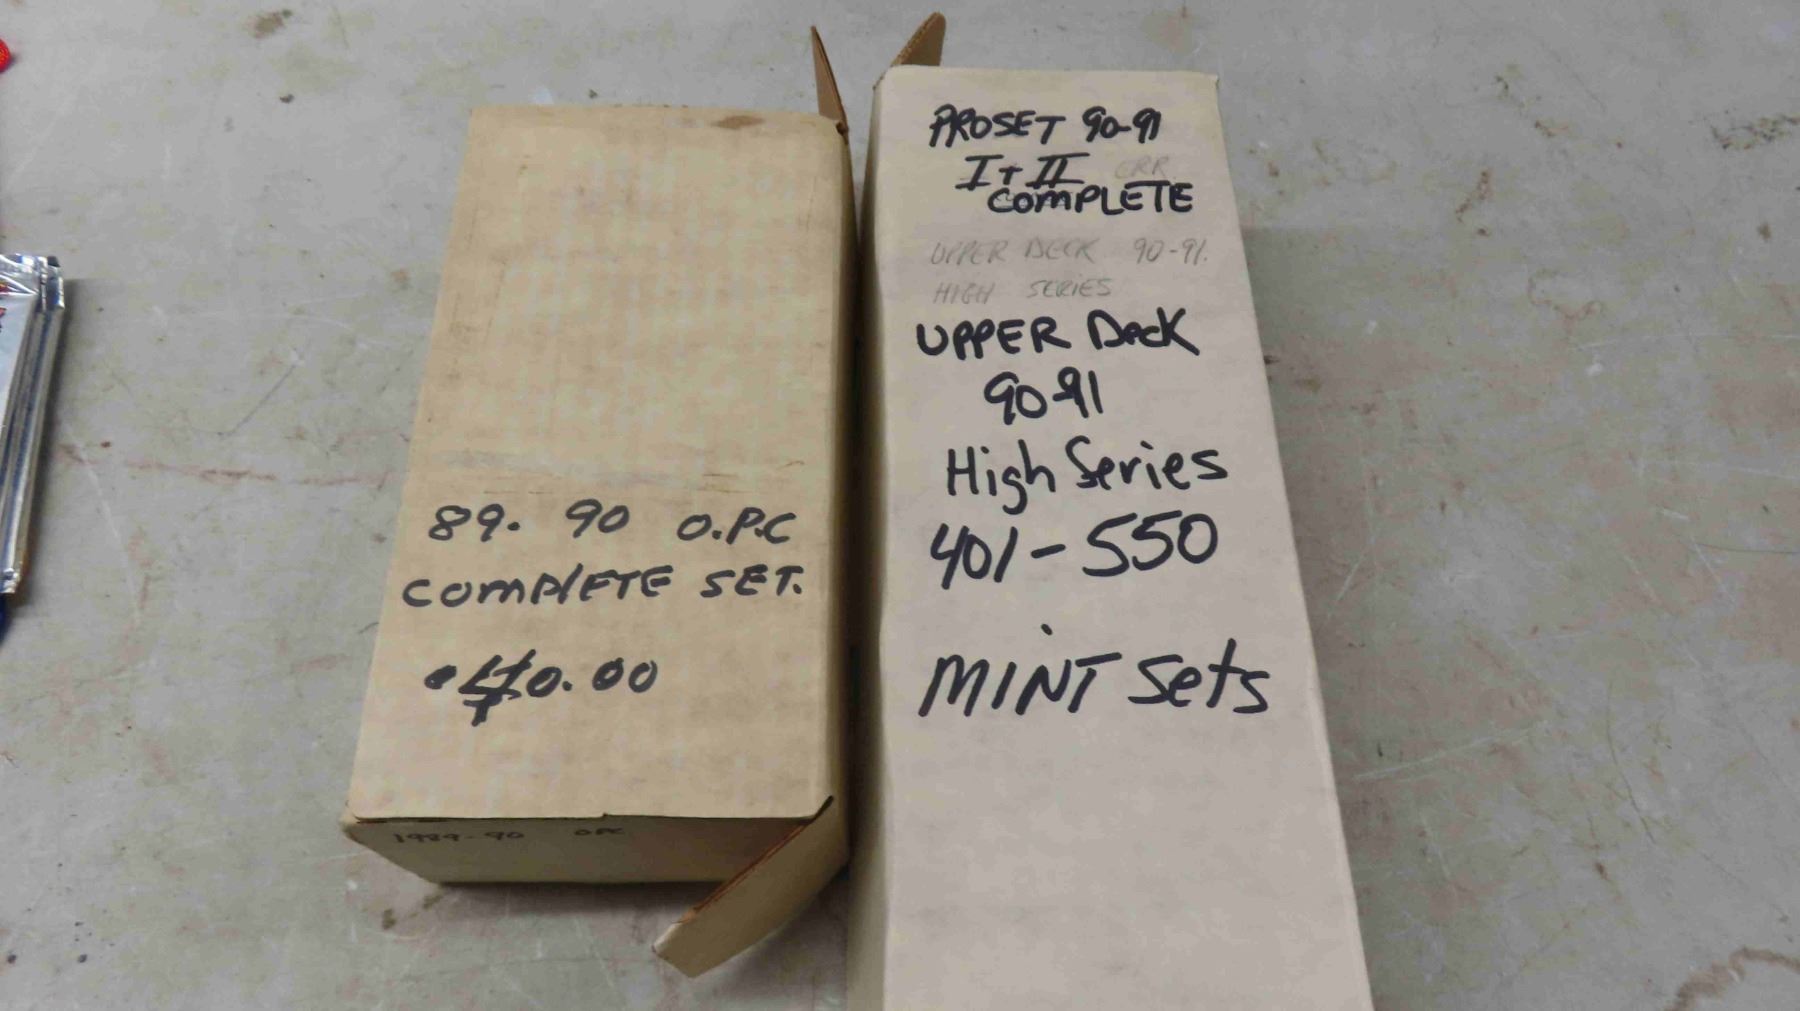 89. 90 O.P.C
COMPLETE SET.
40.00
1989-90 OPC
PROSET 90-91
I + II ERR
COMPLETE
UPPER DECK 90-91.
HIGH SERIES
UPPER Deck
90-91
High Series
401-550
MINT Sets